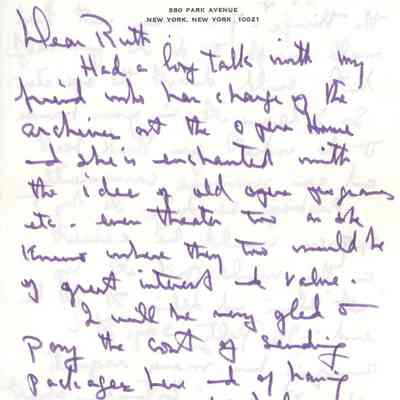 580 PARK AVENUE
NEW YORK, NEW YORK 10021
Dear Ruth
Had a long talk with my
friend who has charge of the
archives at the Opera House
and she's enchanted with
the idea of old opera programs
etc. even theater too as she
knows where they too would be
of great interest and value.
I will be very glad to
pay the cost of sending
packages here and of having